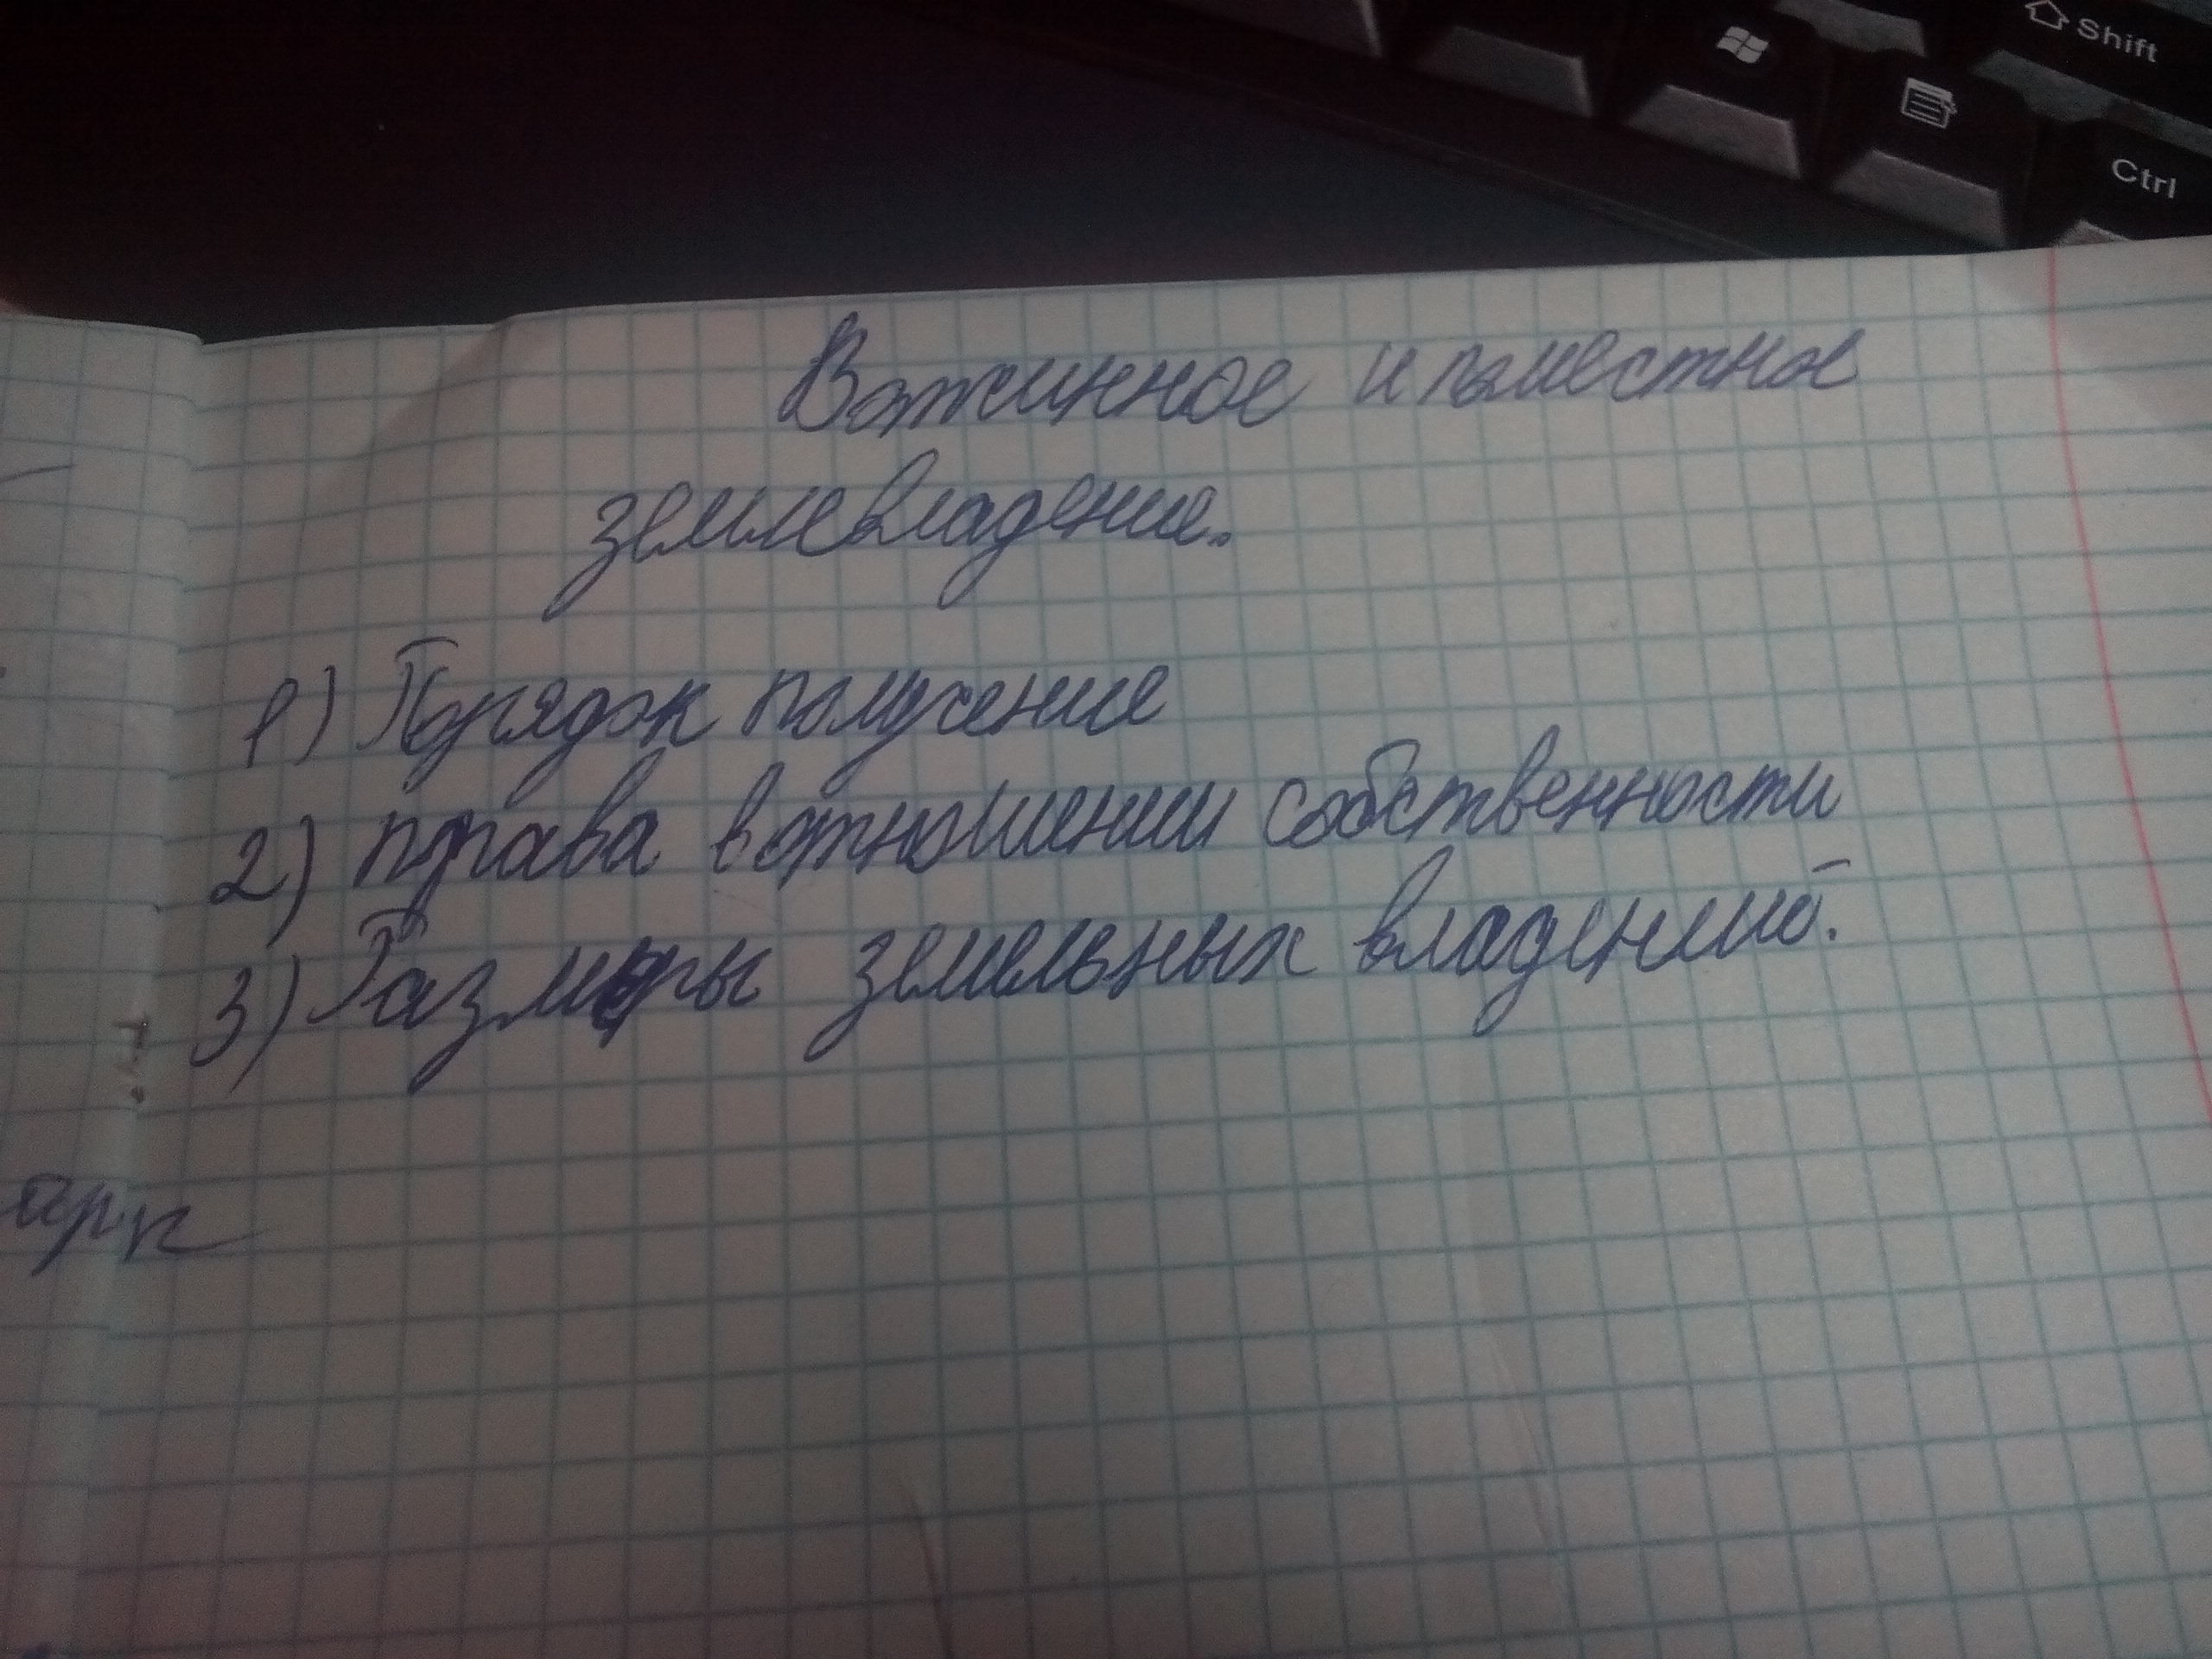 Shift
Ctrl
Вотчинное и поместное
землевладение.
1) Порядок получение
2) права в отношении собственности
3) Размеры земельных владений.
арк